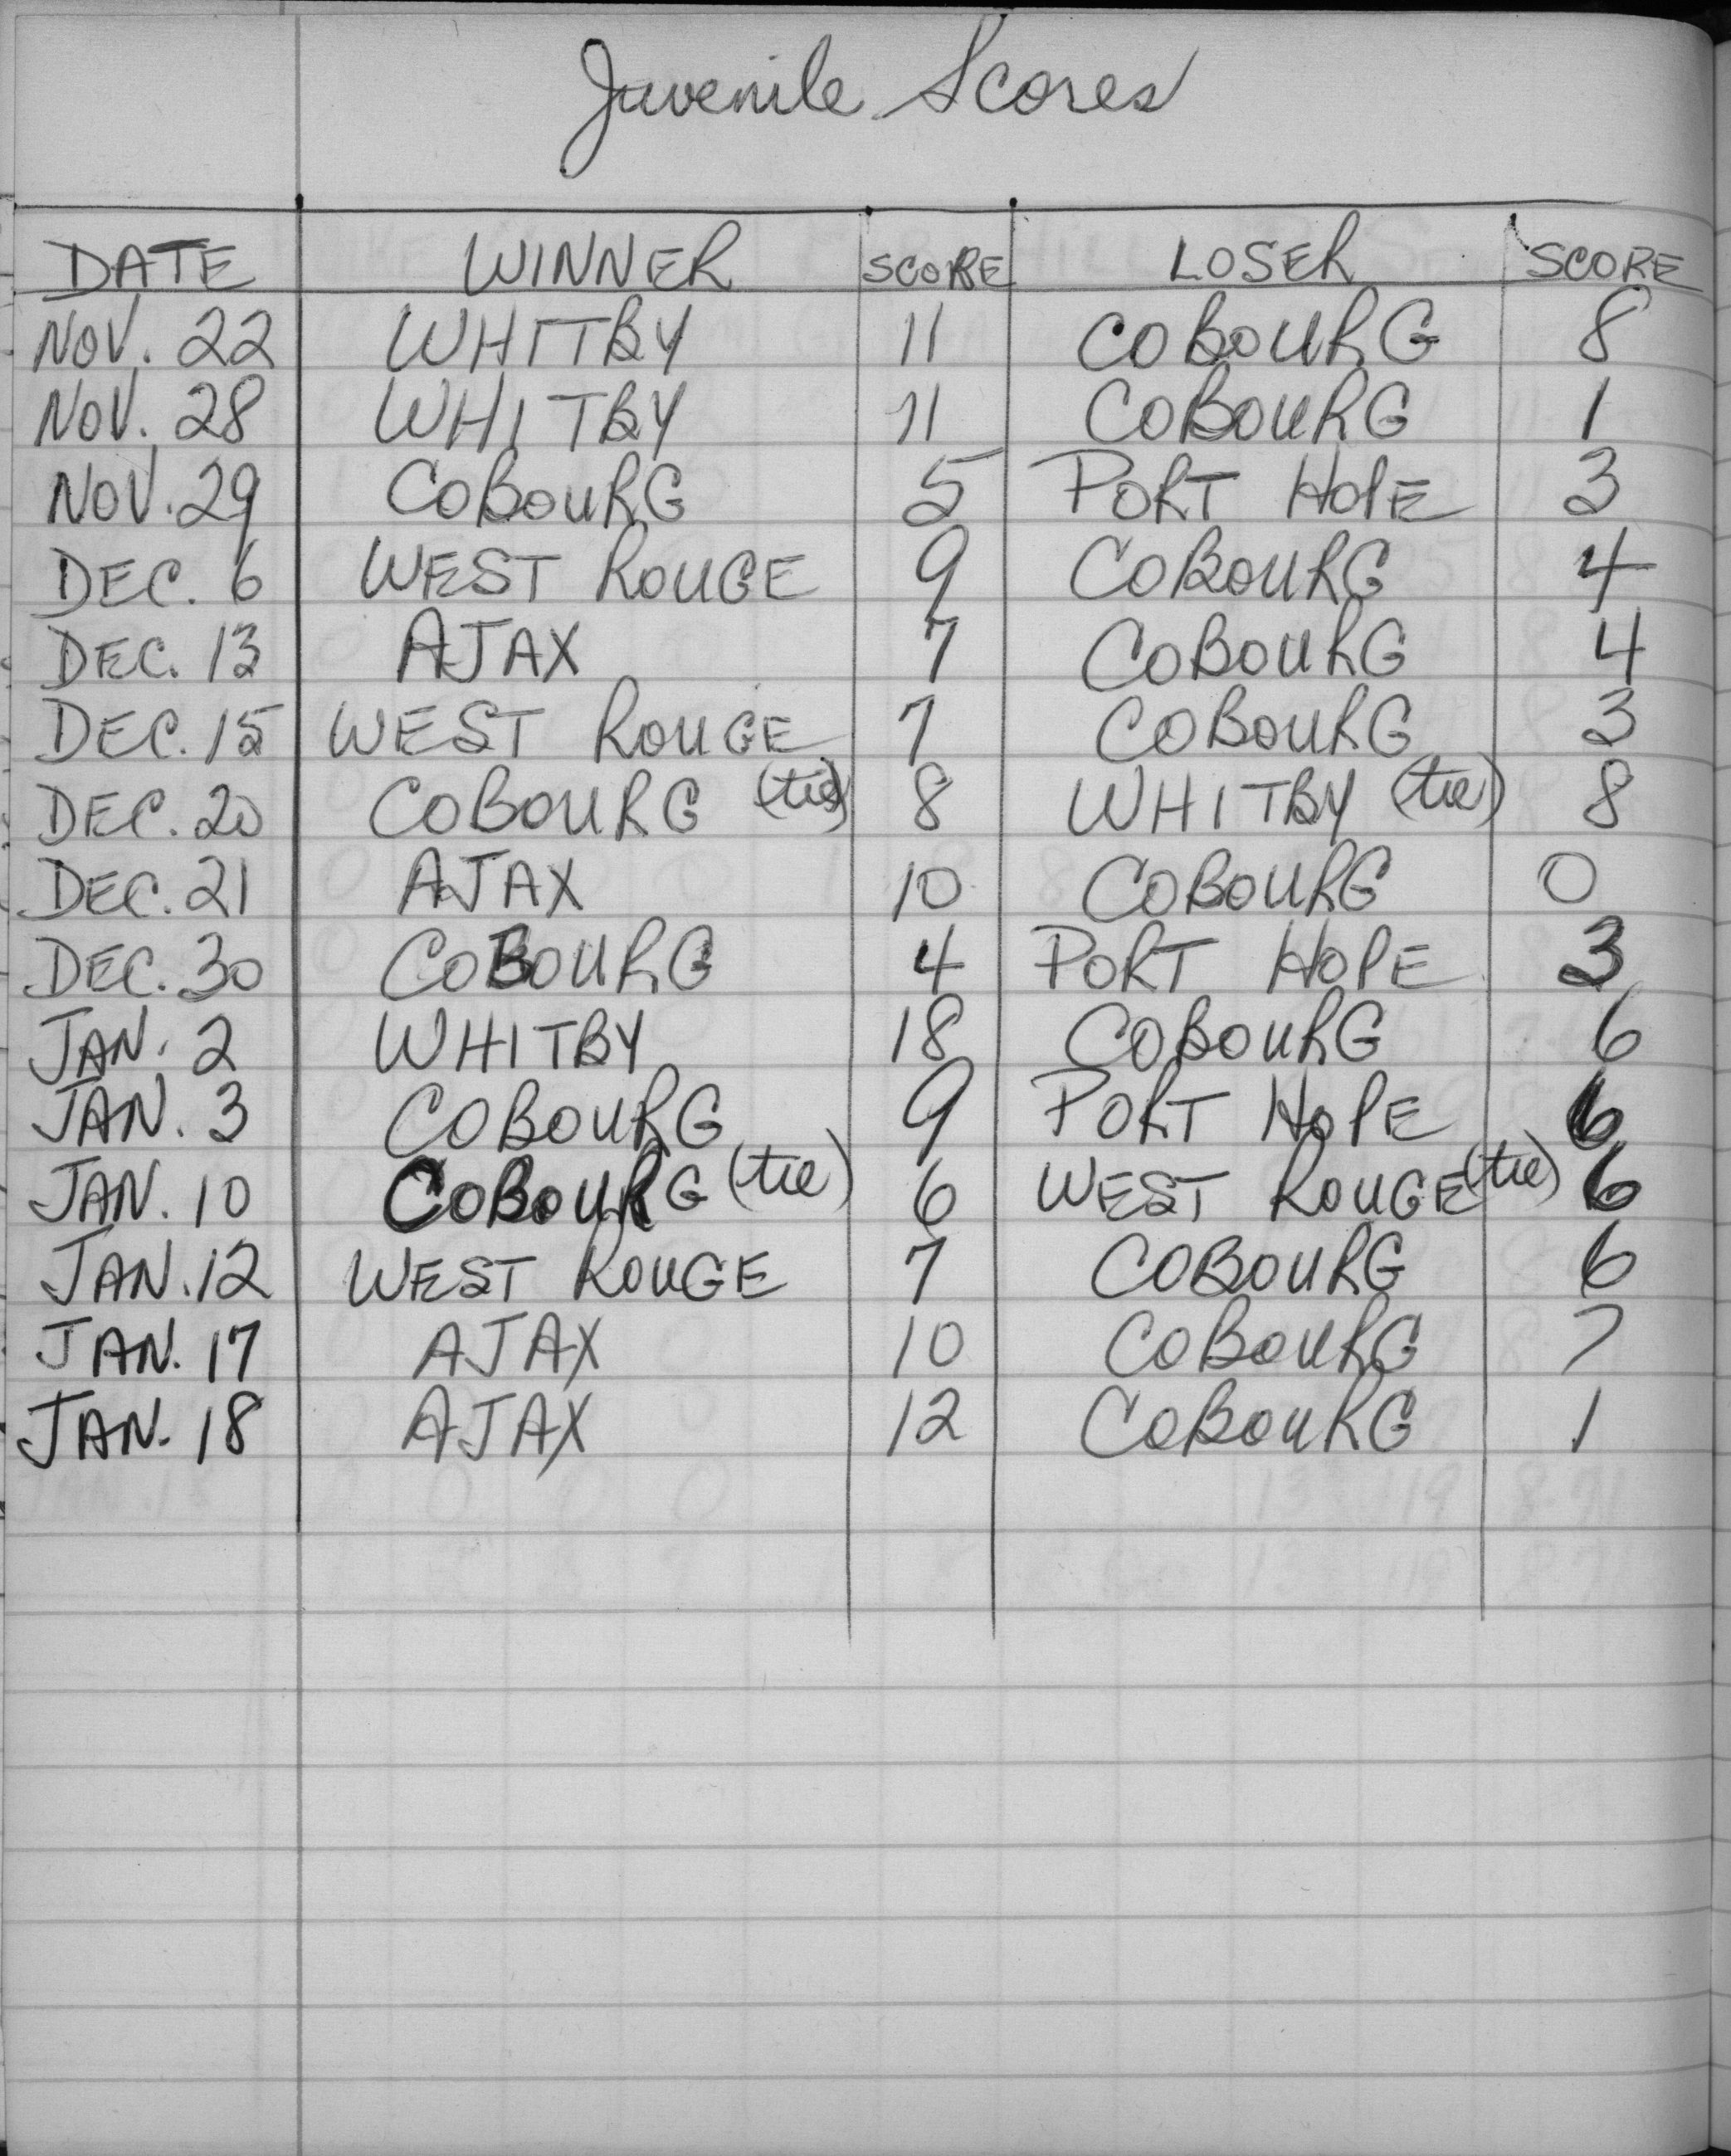 Juvenile Scores
DATE WINNER SCORE LOSER SCORE
NOV. 22 WHITBY 11 COBOURG 8
NOV. 28 WHITBY 11 COBOURG 1
NOV. 29 COBOURG 5 PORT HOPE 3
DEC. 6 WEST ROUGE 9 COBOURG 4
DEC. 13 AJAX 7 COBOURG 4
DEC. 15 WEST ROUGE 7 COBOURG 3
DEC. 20 COBOURG (tie) 8 WHITBY (tie) 8
DEC. 21 AJAX 10 COBOURG 0
DEC. 30 COBOURG 4 PORT HOPE 3
JAN. 2 WHITBY 18 COBOURG 6
JAN. 3 COBOURG 9 PORT HOPE 6
JAN. 10 COBOURG (tie) 6 WEST ROUGE (tie) 6
JAN. 12 WEST ROUGE 7 COBOURG 6
JAN. 17 AJAX 10 COBOURG 7
JAN. 18 AJAX 12 COBOURG 1